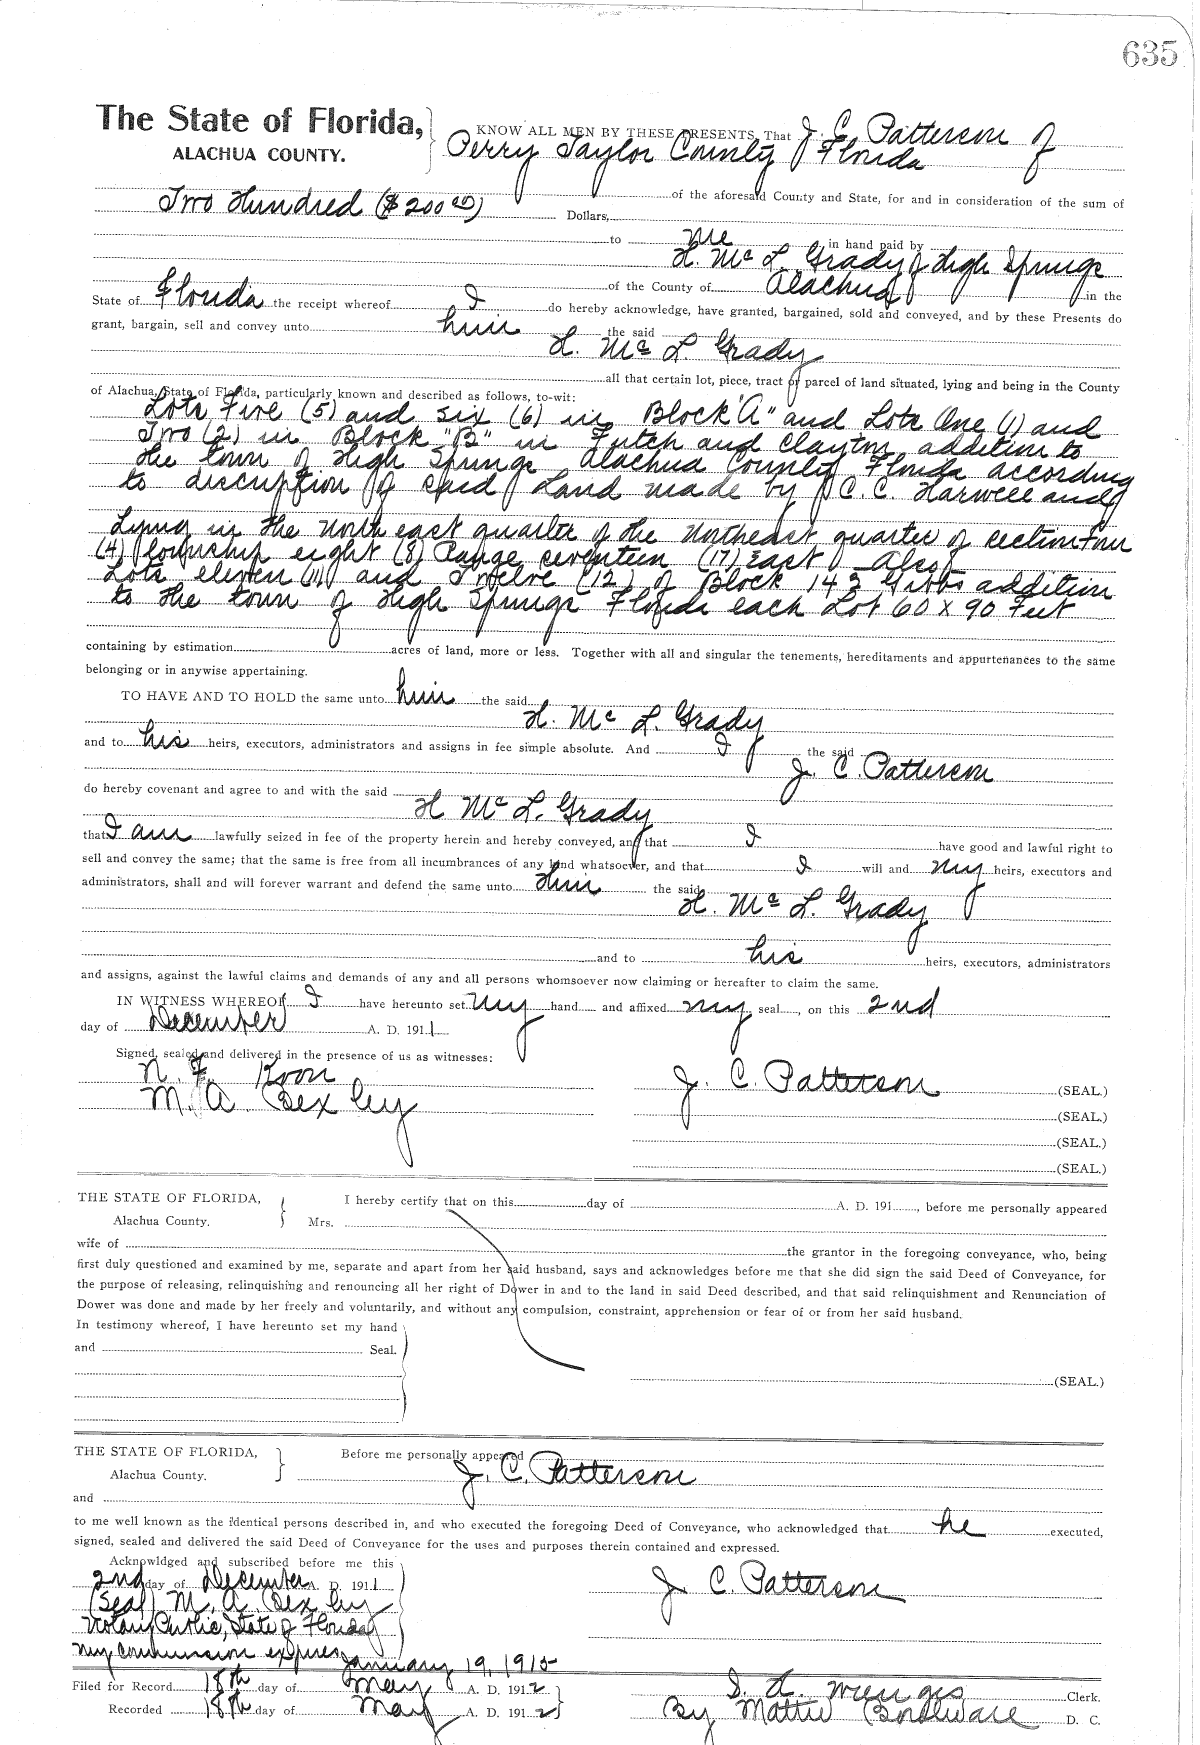 635
The State of Florida,
ALACHUA COUNTY.
KNOW ALL MEN BY THESE PRESENTS, That J. C. Patterson of
Perry Taylor County Florida
of the aforesaid County and State, for and in consideration of the sum of
Two Hundred ($200 00) Dollars,
to me in hand paid by
H. Mc L. Grady of High Springs
of the County of Alachua in the
State of Florida the receipt whereof I do hereby acknowledge, have granted, bargained, sold and conveyed, and by these Presents do
grant, bargain, sell and convey unto him the said
H. Mc L. Grady
all that certain lot, piece, tract or parcel of land situated, lying and being in the County
of Alachua, State of Florida, particularly known and described as follows, to-wit:
Lots Five (5) and six (6) in Block "A" and Lots One (1) and
Two (2) in Block "B" in Futch and Clayton addition to
the town of High Springs Alachua County Florida according
to discription of said Land made by C. C. Harwell and
Lying in the North east quarter of the Northeast quarter of section Four
(4) Township eight (8) Range seventeen (17) East Also
Lots eleven (11) and Twelve (12) of Block 143 Gibbs addition
to the town of High Springs Florida each Lot 60 x 90 Feet
containing by estimation acres of land, more or less. Together with all and singular the tenements, hereditaments and appurtenances to the same
belonging or in anywise appertaining.
TO HAVE AND TO HOLD the same unto him the said
H. Mc L. Grady
and to his heirs, executors, administrators and assigns in fee simple absolute. And I the said
J. C. Patterson
do hereby covenant and agree to and with the said
H Mc L. Grady
that I am lawfully seized in fee of the property herein and hereby conveyed, and that I have good and lawful right to
sell and convey the same; that the same is free from all incumbrances of any kind whatsoever, and that I will and my heirs, executors and
administrators, shall and will forever warrant and defend the same unto him the said
H. Mc L. Grady
and to his heirs, executors, administrators
and assigns, against the lawful claims and demands of any and all persons whomsoever now claiming or hereafter to claim the same.
IN WITNESS WHEREOF I have hereunto set my hand and affixed my seal, on this 2nd
day of December A. D. 1911
Signed, sealed and delivered in the presence of us as witnesses:
N. F. Koon
M. A. Bexley
J. C. Patterson (SEAL.)
(SEAL.)
(SEAL.)
(SEAL.)
THE STATE OF FLORIDA,
Alachua County.
I hereby certify that on this day of A. D. 191 , before me personally appeared
Mrs.
wife of the grantor in the foregoing conveyance, who, being
first duly questioned and examined by me, separate and apart from her said husband, says and acknowledges before me that she did sign the said Deed of Conveyance, for
the purpose of releasing, relinquishing and renouncing all her right of Dower in and to the land in said Deed described, and that said relinquishment and Renunciation of
Dower was done and made by her freely and voluntarily, and without any compulsion, constraint, apprehension or fear of or from her said husband.
In testimony whereof, I have hereunto set my hand
and Seal.
(SEAL.)
THE STATE OF FLORIDA,
Alachua County.
Before me personally appeared
J. C. Patterson
and
to me well known as the identical persons described in, and who executed the foregoing Deed of Conveyance, who acknowledged that he executed,
signed, sealed and delivered the said Deed of Conveyance for the uses and purposes therein contained and expressed.
Acknwldged and subscribed before me this
2nd day of December A. D. 1911
(Seal) M. A. Bexley
Notary Public, State of Florida
my commission expires January 19, 1915
J C. Patterson
Filed for Record 18th day of May A. D. 1912
Recorded 18th day of May A. D. 1912
S. H. Wienges Clerk.
By Mattie D. C.